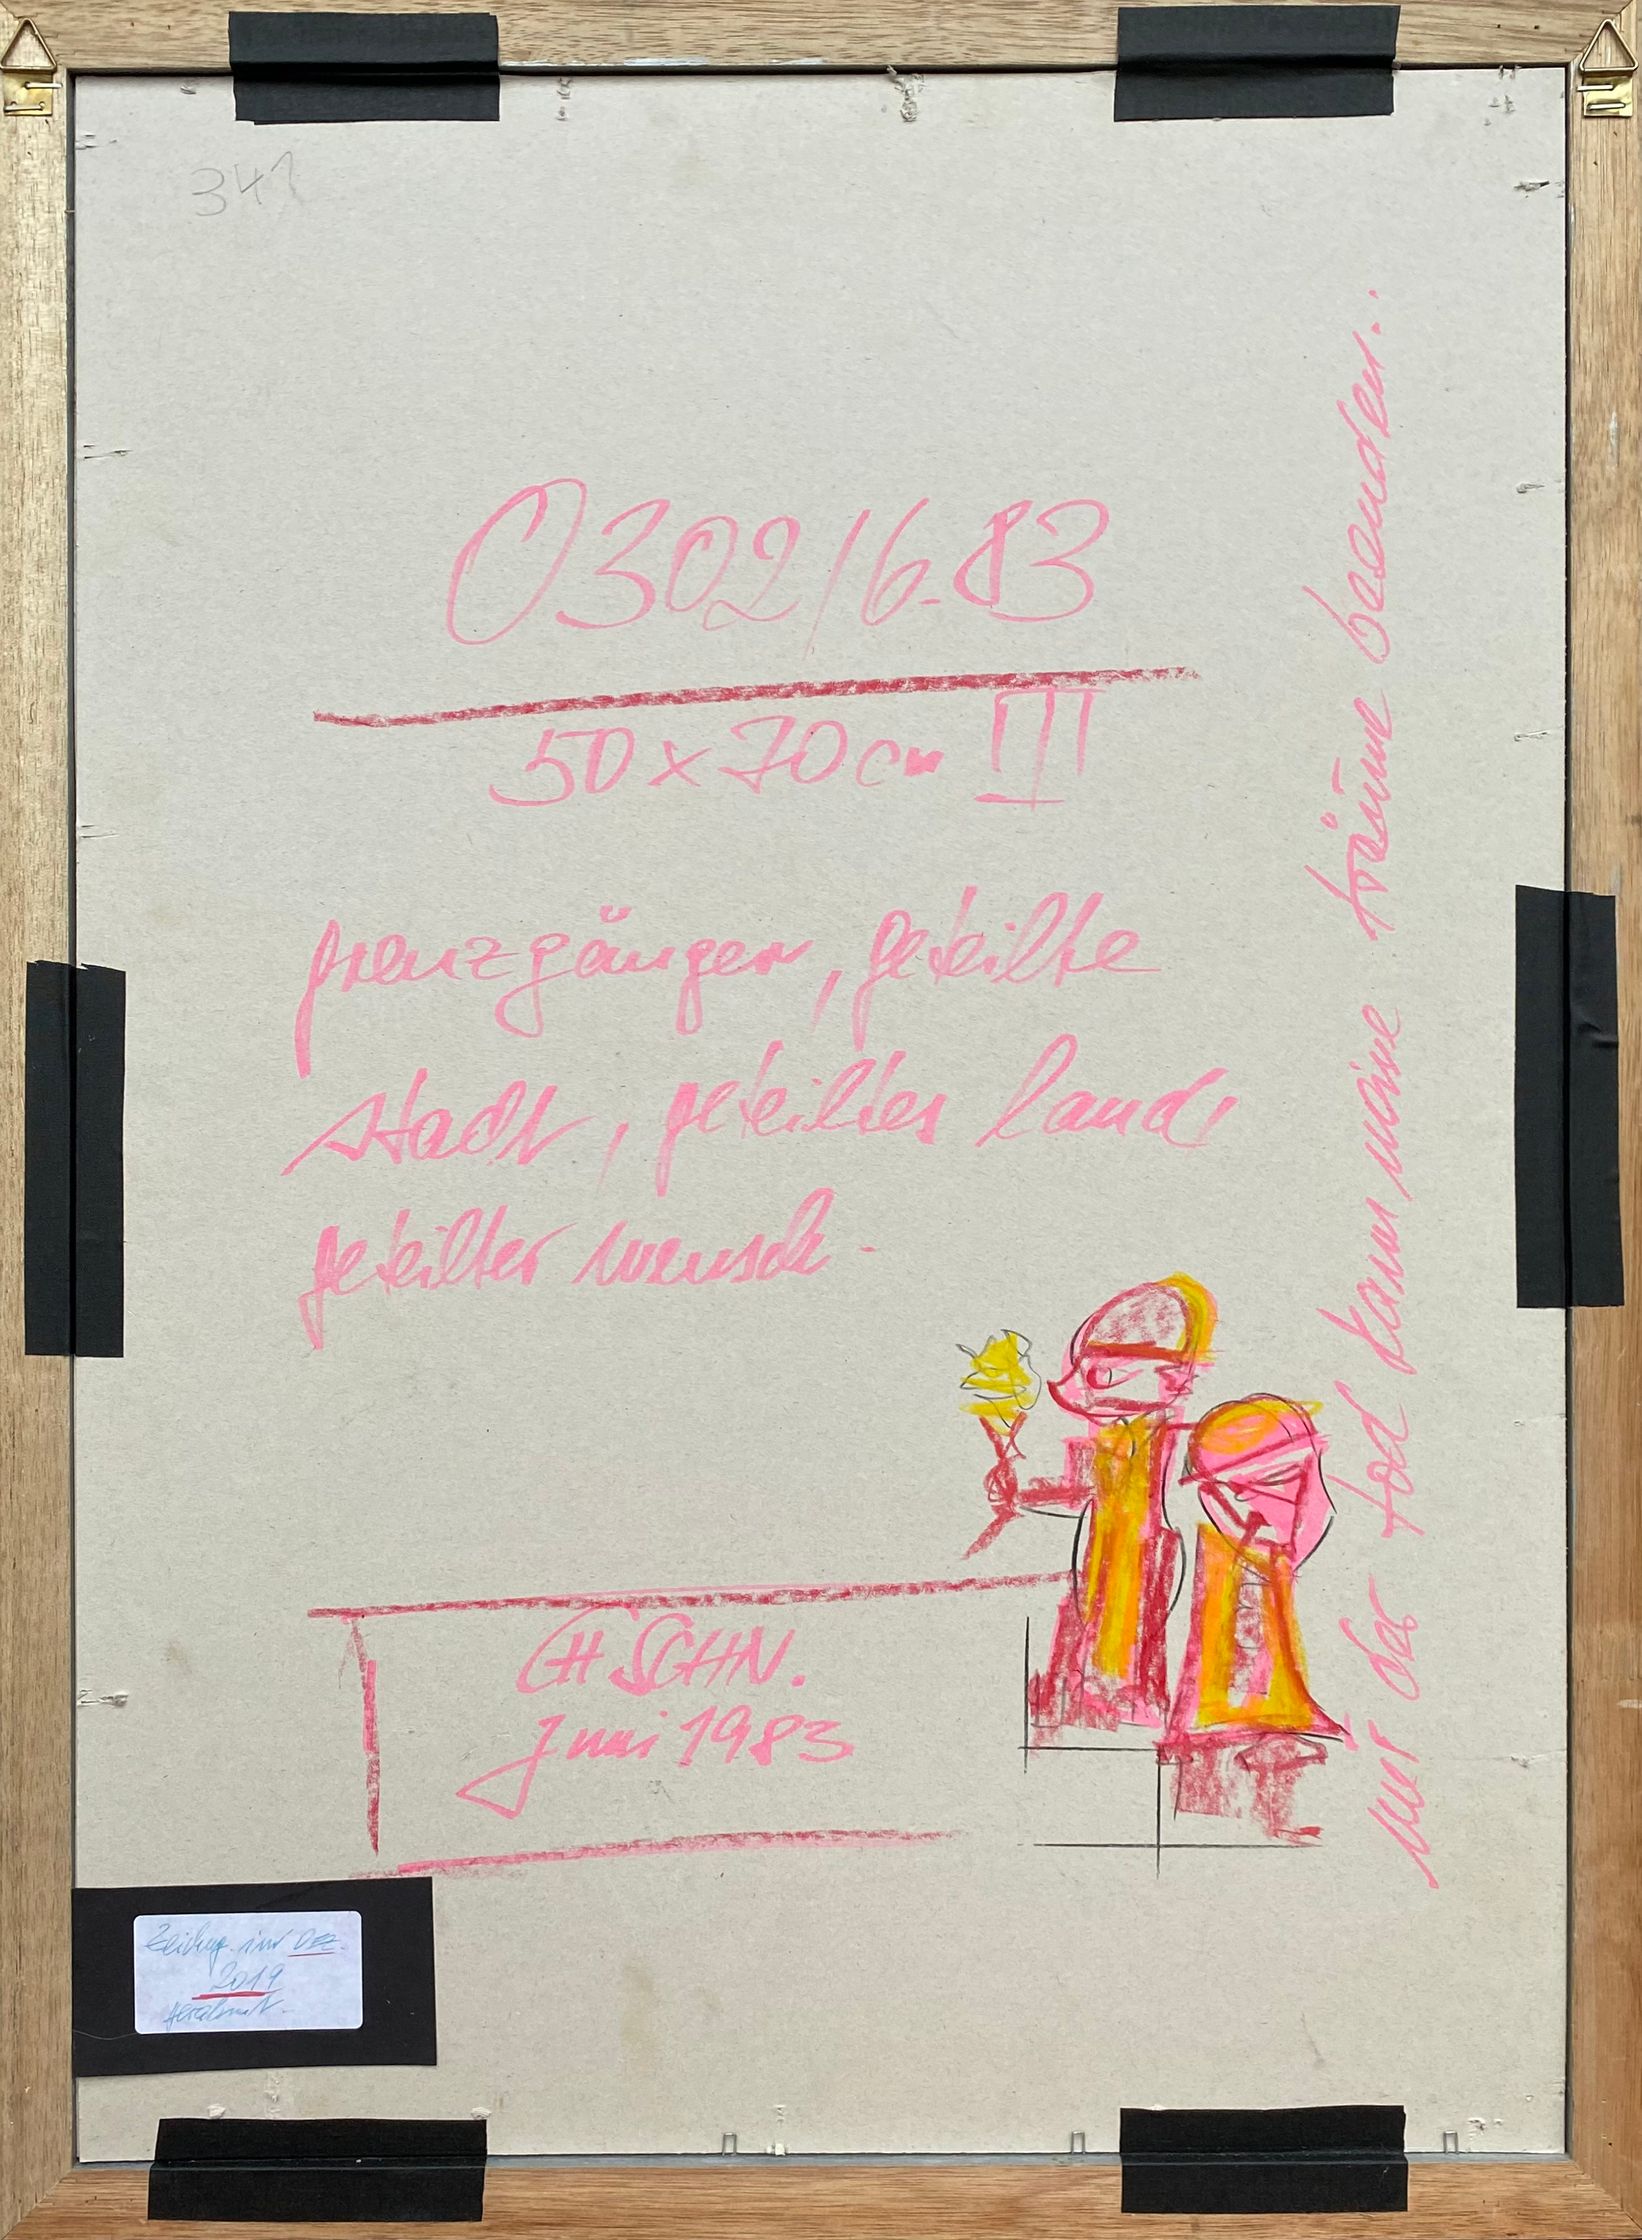 341
0302/6-83
50 x 70 cm III
grenzgänger, geteilte
stadt, geteiltes land,
geteilter mensch -
nur der tod kann meine träume beenden.
CH SCHN.
Juni 1983
im DEZ.
2019
gerahmt.